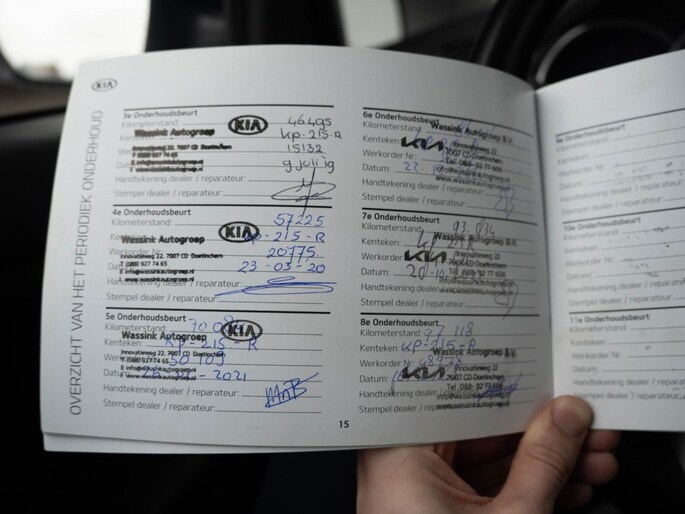 KIA
OVERZICHT VAN HET PERIODIEK ONDERHOUD
3e Onderhoudsbeurt
Kilometerstand: 46495
Kenteken: Wassink Autogroep KIA KP-215-R
Innovatieweg 22, 7007 CD Doetinchem
Werkorder Nr: 15132
T (088) 927 74 65
E info@wassinkautogroep.nl
Datum: 9 juli 19
www.wassinkautogroep.nl
Handtekening dealer / reparateur:
Stempel dealer / reparateur:
4e Onderhoudsbeurt
Kilometerstand: 57225
Kenteken: Wassink Autogroep KIA KP-215-R
Werkorder Nr: 20775
Innovatieweg 22, 7007 CD Doetinchem
T (088) 927 74 65
E info@wassinkautogroep.nl
Datum: 23-03-20
www.wassinkautogroep.nl
Handtekening dealer / reparateur:
Stempel dealer / reparateur:
5e Onderhoudsbeurt
Kilometerstand:
Wassink Autogroep KIA
Kenteken: KP-215-R
Innovatieweg 22, 7007 CD Doetinchem
Werkorder Nr:
T (088) 927 74 65
E info@wassinkautogroep.nl
Datum: 2021
www.wassinkautogroep.nl
Handtekening dealer / reparateur:
Stempel dealer / reparateur:
6e Onderhoudsbeurt
Kilometerstand:
Wassink Autogroep B.V.
Kenteken: KIA
Innovatieweg 22
Werkorder Nr: 7007 CD Doetinchem
Tel. 088 - 92 77 606
Datum: 23
info@wassinkautogroep.nl
www.wassinkautogroep.nl
Handtekening dealer / reparateur:
Stempel dealer / reparateur:
7e Onderhoudsbeurt
Kilometerstand:
Wassink Autogroep B.V.
Kenteken:
KIA Innovatieweg 22
Werkorder Nr: 7007 CD Doetinchem
Tel. 088 - 92 77 606
Datum: 20
info@wassinkautogroep.nl
www.wassinkautogroep.nl
Handtekening dealer / reparateur:
Stempel dealer / reparateur:
8e Onderhoudsbeurt
Kilometerstand: 118
Kenteken: KP-215-R
Wassink Autogroep B.V.
Werkorder Nr:
KIA Innovatieweg 22
7007 CD Doetinchem
Datum:
Tel. 088 - 92 77 606
info@wassinkautogroep.nl
Handtekening dealer / reparateur:
www.wassinkautogroep.nl
Stempel dealer / reparateur:
15
9e Onderhoudsbeurt
Kilometerstand:
Kenteken:
Werkorder Nr:
Datum:
Handtekening dealer
Stempel dealer / reparateur:
10e Onderhoudsbeurt
Kilometerstand:
Kenteken:
Werkorder Nr:
Datum:
Handtekening dealer
Stempel dealer / reparateur:
11e Onderhoudsbeurt
Kilometerstand:
Kenteken:
Werkorder Nr:
Datum:
Handtekening dealer / reparateur:
Stempel dealer / reparateur: